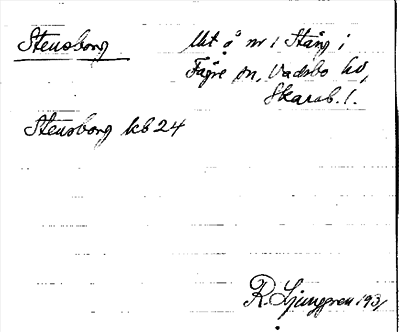 Stensborg
Utt å nr 1 Stång i
Fägre sn, Vadsbo hd,
Skarab. l.
Stensborg kb 24
R. Ljunggren 1931